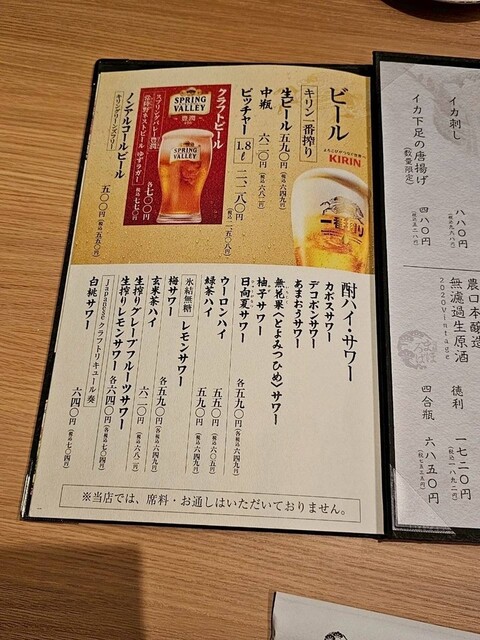 ビール
キリン一番搾り
生ビール 五九〇円（税込六四九円）
中瓶 六二〇円（税込六八二円）
ピッチャー 1.8ℓ 二、一八〇円
KIRIN
一番搾り
クラフトビール
スプリングバレー豊潤
常陸野ネストビール ゆずラガー 各七〇〇円（税込七七〇円）
SPRING VALLEY
豊潤
SPRING VALLEY
ノンアルコールビール
キリングリーンズフリー
五〇〇円（税込五五〇円）
酎ハイ・サワー
カボスサワー
デコポンサワー
あまおうサワー
無花果〈とよみつひめ〉サワー
柚子サワー
日向夏サワー 各五九〇円（各税込六四九円）
ウーロンハイ
緑茶ハイ 五五〇円
氷結無糖 レモンサワー 五九〇円（税込六四九円）
梅サワー
玄米茶ハイ 各五九〇円（各税込六四九円）
生搾りグレープフルーツサワー 六二〇円（税込六八二円）
生搾りレモンサワー 各六四〇円（各税込七〇四円）
Japanese クラフトリキュール 奏
白桃サワー 六四〇円（税込七〇四円）
※当店では、席料・お通しはいただいておりません。
イカ刺し 八八〇円
イカ下足の唐揚げ（数量限定） 四八〇円（税込五二八円）
農口本醸造
無濾過生原酒
2020Vintage
徳利 一七二〇円（税込一八九二円）
四合瓶 六八五〇円（税込七五三五円）